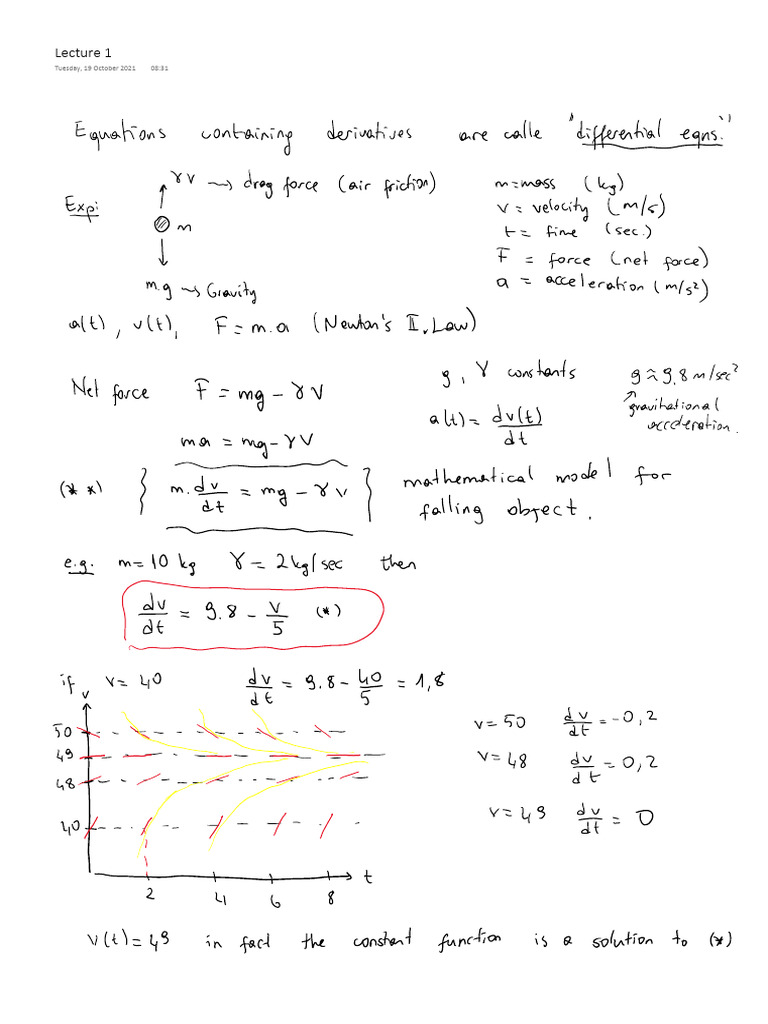 Lecture 1
Tuesday, 19 October 2021 08:31
Equations containing derivatives are calle "differential eqns."
Exp:
γv → drag force (air friction)
m
m.g → Gravity
m=mass (kg)
v = velocity (m/s)
t = time (sec.)
F = force (net force)
a = acceleration (m/s²)
a(t), v(t), F = m.a (Newton's II. Law)
Net force F = mg - γv
g, γ constants
g ≈ 9.8 m/sec²
gravitational
acceleration.
a(t) = dv(t)/dt
ma = mg - γv
(**) { m. dv/dt = mg - γv } mathematical model for
falling object.
e.g. m=10 kg γ = 2kg/sec then
dv/dt = 9.8 - v/5 (*)
if v = 40 dv/dt = 9.8 - 40/5 = 1,8
v
50
49
48
40
2 4 6 8 t
v=50 dv/dt = -0,2
v=48 dv/dt = 0,2
v=49 dv/dt = 0
v(t)=49 in fact the constant function is a solution to (*)